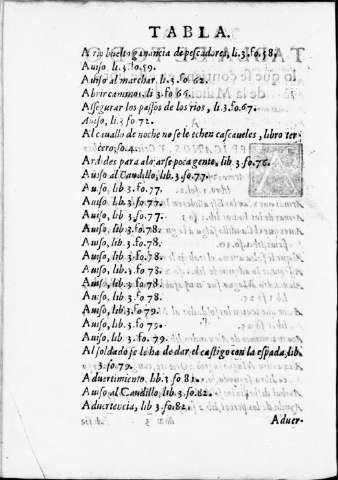 TABLA.
A rio buelto ganancia de pescadores, li.3.fo.58.
Auiso, li.3.fo.59.
Auiso al marchar, li.3.fo.62.
Abrir caminos, li.3 fo.65.
Assegurar los passos de los rios, li.3.fo.67.
Auiso, li.3 fo.72.
Al cauallo de noche no se le echen cascaueles, libro ter-
cero, fo.4.
Ardides para aloxarse poca gente, lib 3.fo.76.
Auiso al Caudillo, lib.3.fo.77.
Auiso, lib 3.fo.77.
Auiso, lib 3.fo.77.
Auiso, lib 3.fo.77.
Auiso, lib 3.fo.78.
Auiso, lib 3.fo.78.
Auiso, lib 3.fo.78.
Auiso, lib 3.fo 73.
Auiso, lib 3.fo 78.
Auiso, lib 3.fo 78.
Auiso, lib 3.fo.79.
Auiso, lib 3.fo 79.
Auiso, lib 3.fo.79
Al soldado se le ha de dar el castigo con la espada, lib.
3.fo.79.
Aduertimiento, lib.3.fo 81.
Auiso al Caudillo, lib.3.fo.82.
Aduertencia, lib 3.fo.82.
Aduer-